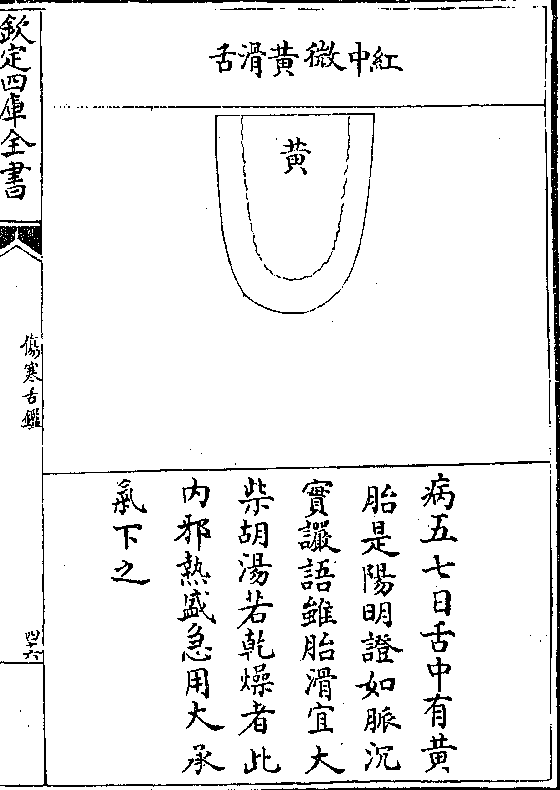 紅中微黄滑舌
黄
病五七日舌中有黄
胎是陽明證如脈沉
實讝語雖胎滑宜大
柴胡湯若乾燥者此
内邪熱盛急用大承
氣下之
欽定四庫全書
傷寒舌鑑
四十六